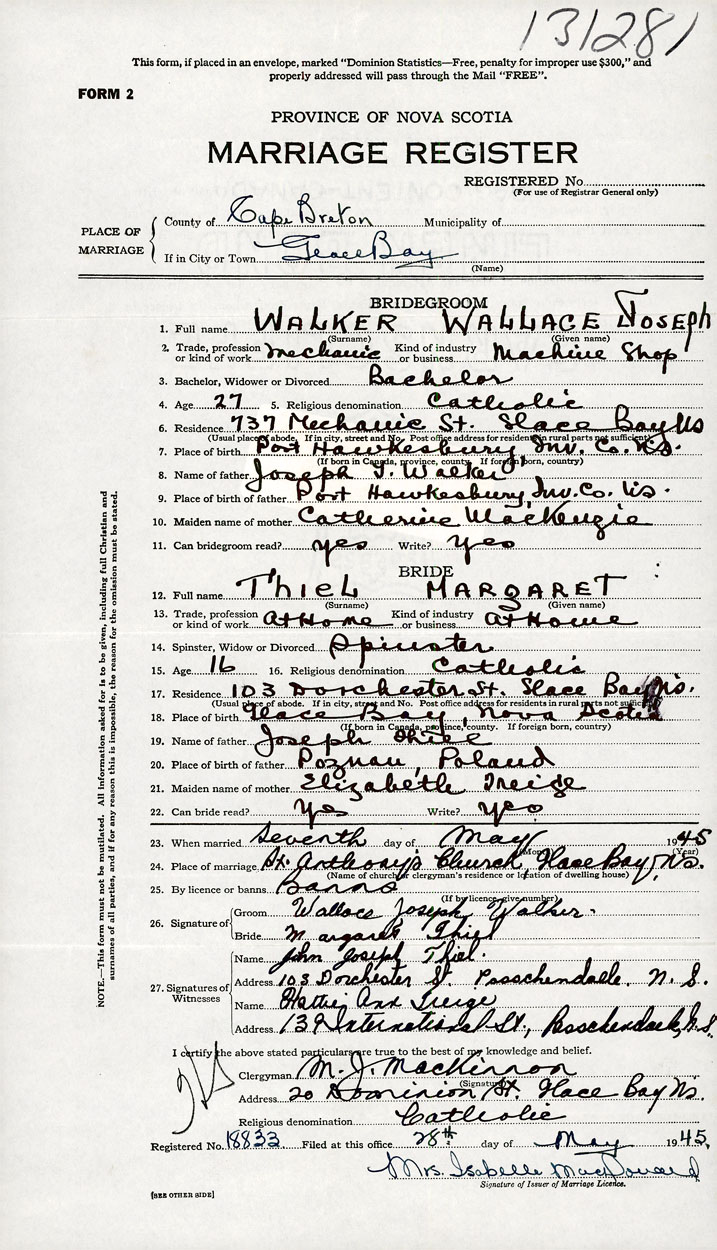 131281
This form, if placed in an envelope, marked "Dominion Statistics—Free, penalty for improper use $300," and
properly addressed will pass through the Mail "FREE".
FORM 2
PROVINCE OF NOVA SCOTIA
MARRIAGE REGISTER
REGISTERED No.
(For use of Registrar General only)
PLACE OF MARRIAGE
County of Cape Breton Municipality of
If in City or Town Glace Bay
(Name)
BRIDEGROOM
1. Full name WALKER WALLACE Joseph
(Surname) (Given name)
2. Trade, profession or kind of work Mechanic Kind of industry or business Machine Shop
3. Bachelor, Widower or Divorced Bachelor
4. Age 27 5. Religious denomination Catholic
6. Residence 737 Mechanic St. Glace Bay NS
(Usual place of abode. If in city, street and No. Post office address for residents in rural parts not sufficient)
7. Place of birth Port Hawkesbury, Inv. Co. N.S.
(If born in Canada, province, county. If foreign born, country)
8. Name of father Joseph J. Walker
9. Place of birth of father Port Hawkesbury, Inv. Co. N.S.
10. Maiden name of mother Catherine MacKenzie
11. Can bridegroom read? yes Write? yes
BRIDE
12. Full name THIEL MARGARET
(Surname) (Given name)
13. Trade, profession or kind of work At Home Kind of industry or business At Home
14. Spinster, Widow or Divorced Spinster
15. Age 16 16. Religious denomination Catholic
17. Residence 103 Dorchester St. Glace Bay N.S.
(Usual place of abode. If in city, street and No. Post office address for residents in rural parts not sufficient)
18. Place of birth Glace Bay, Nova Scotia
(If born in Canada, province, county. If foreign born, country)
19. Name of father Joseph Thiel
20. Place of birth of father Poznau, Poland
21. Maiden name of mother Elizabeth
22. Can bride read? Yes Write? yes
23. When married Seventh day of May 1945
(Month) (Year)
24. Place of marriage St. Anthony's Church, Glace Bay, N.S.
(Name of church or clergyman's residence or location of dwelling house)
25. By licence or banns Banns
(If by licence give number)
26. Signature of
Groom Wallace Joseph Walker.
Bride Margaret Thiel
27. Signatures of Witnesses
Name John Joseph Thiel.
Address 103 Dorchester St. Passchendaele, N. S.
Name Hattie Ann
Address 139 International St., Passchendaele, N.S.
I certify the above stated particulars are true to the best of my knowledge and belief.
Clergyman M. J. MacKinnon
(Signature)
Address 20 Dominion St. Glace Bay NS.
Religious denomination Catholic
Registered No. 18833 Filed at this office 28th day of May 1945.
Mrs. Isabelle MacDonald
Signature of Issuer of Marriage Licence.
[SEE OTHER SIDE]
NOTE.—This form must not be mutilated. All information asked for is to be given, including full Christian and
surnames of all parties, and if for any reason this is impossible, the reason for the omission must be stated.